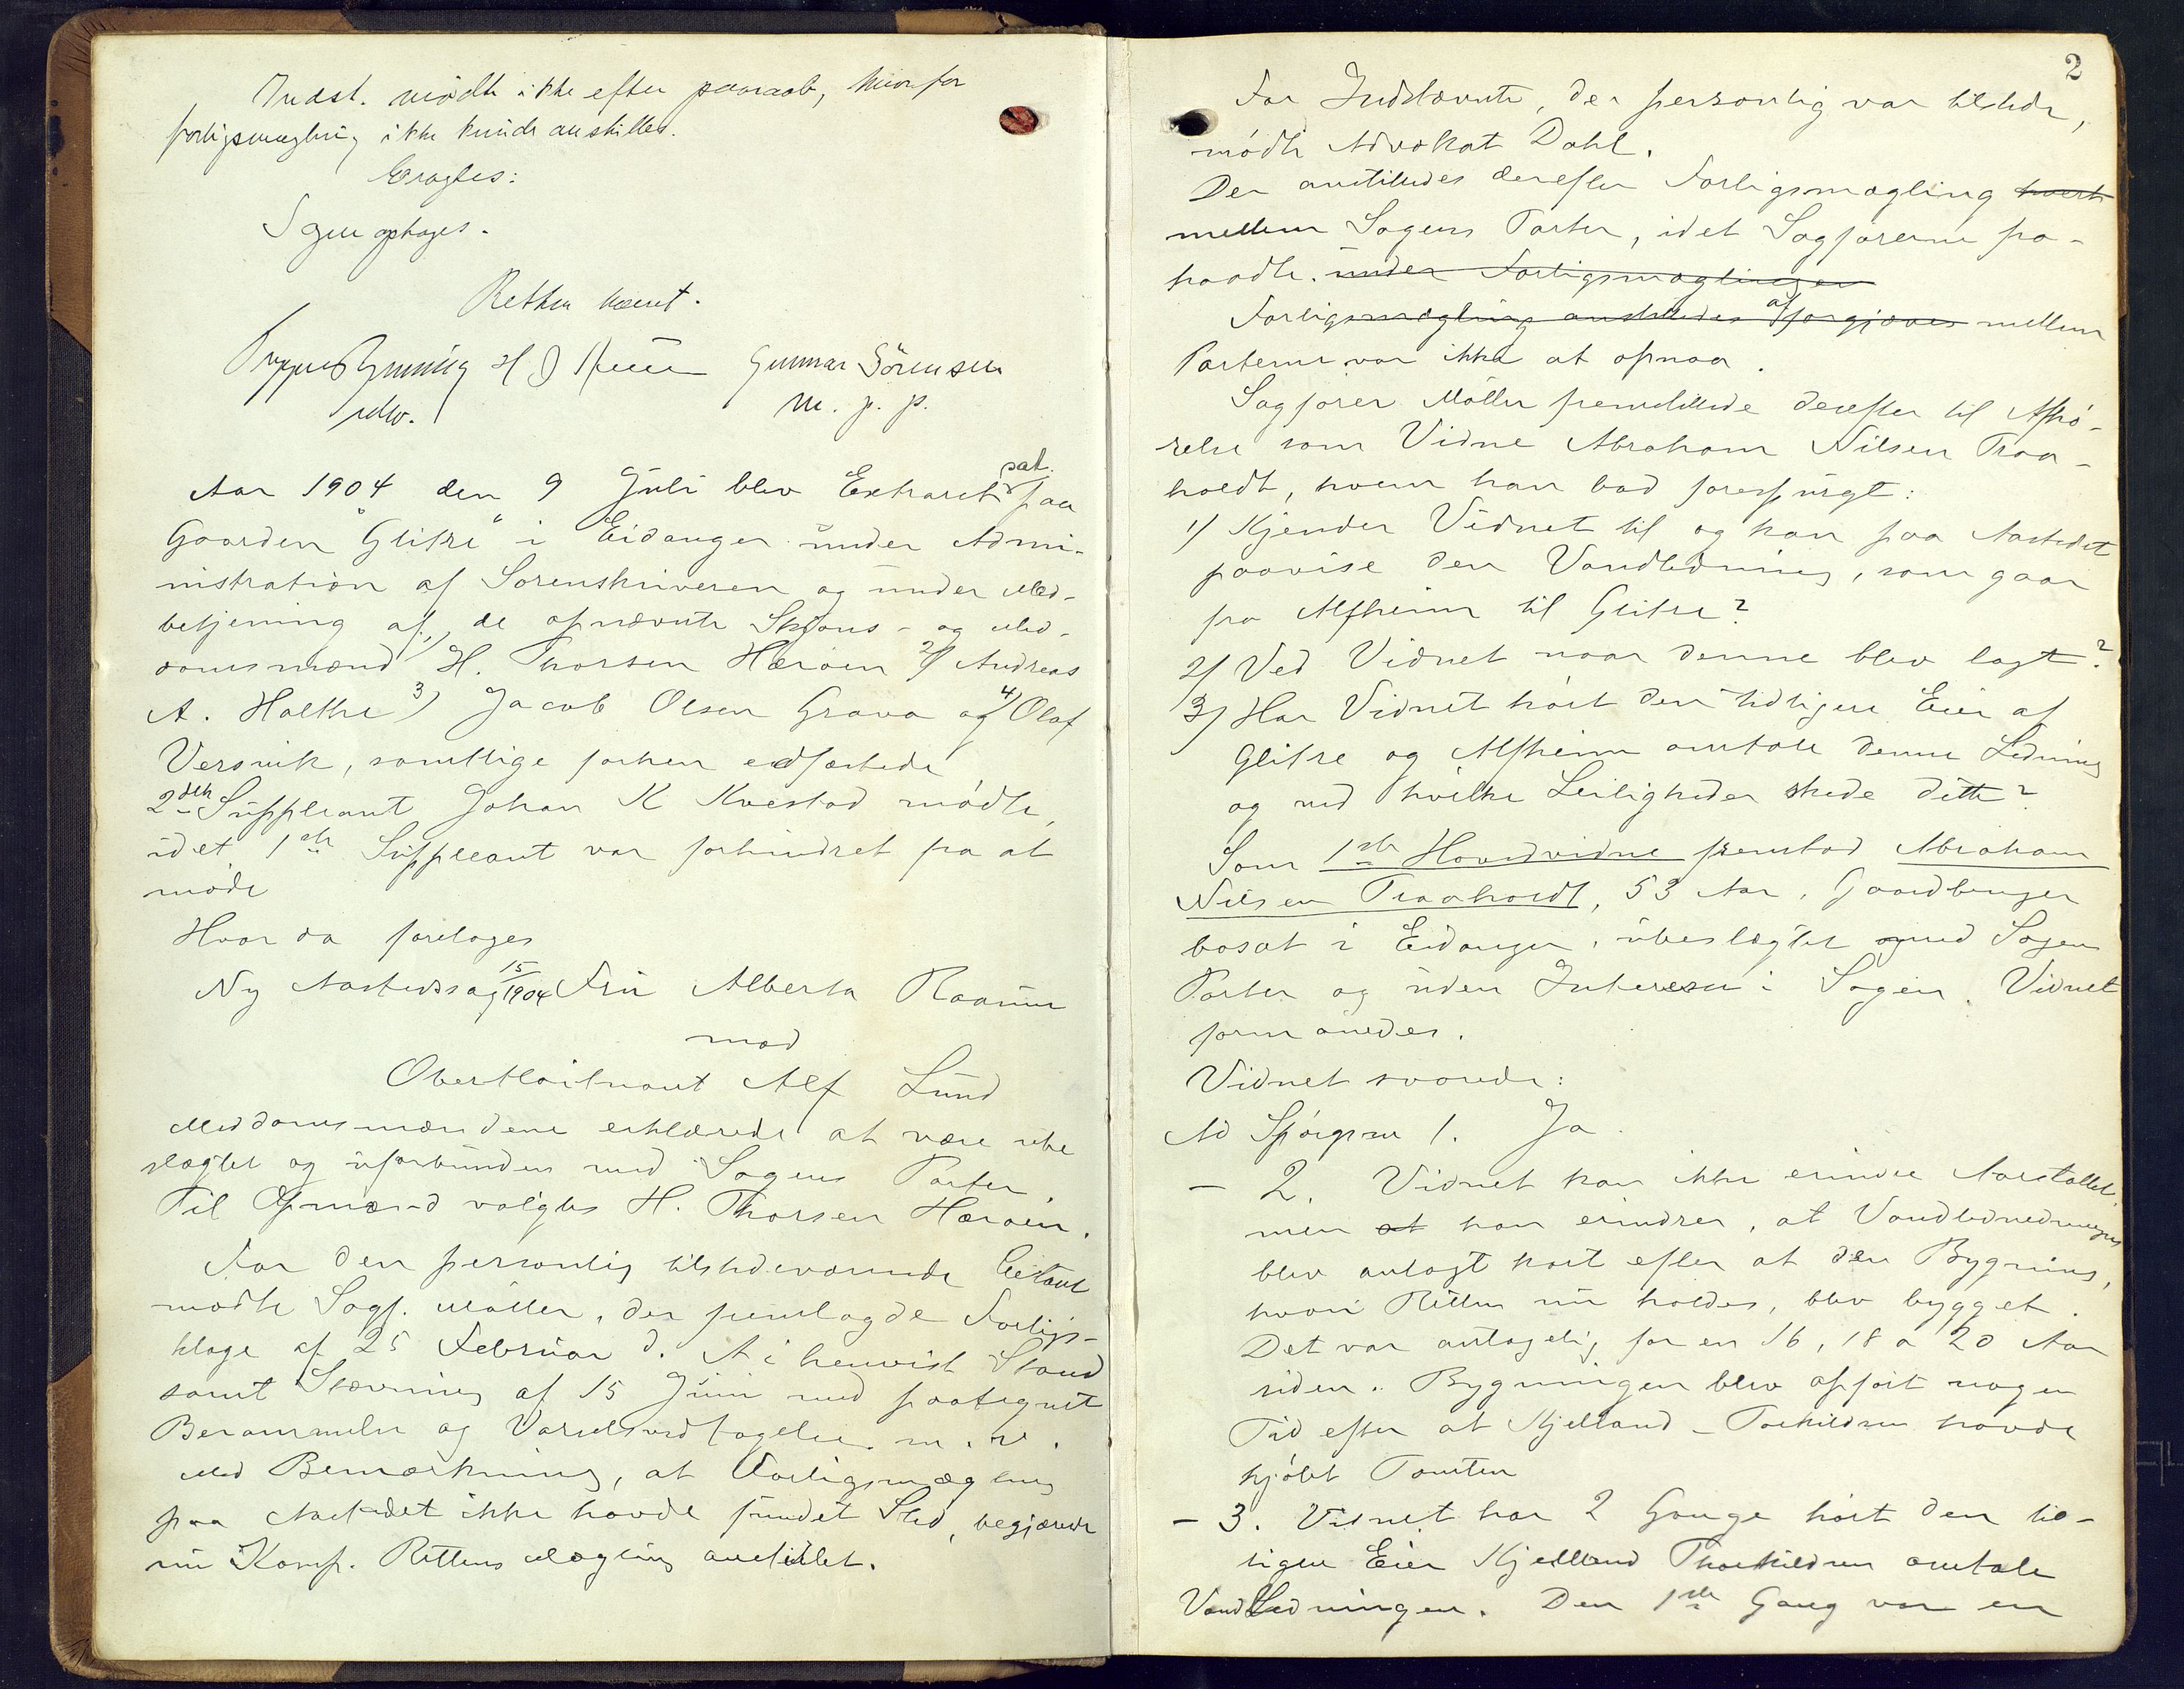 Indst. mødte ikke efter paaraab, hvorfor
forligsmægling ikke kunde anstilles.
Eragtes:
Sagen optages.
Retten hævet.
Gunnar Sörensen
m. p. p.
Aar 1904 den 9 Juli blev Extraret sat paa
Gaarden "Glitre" i Eidanger under Admi-
nistration af Sorenskriveren og under Med-
betjening af de opnævnte Skjøns- og Med-
domsmænd 1) H. Thorsen Herøen 2) Andreas
A. Holtke 3) Jacob Olsen Grava og 4) Olaf
Versvik, samtlige forhen edfæstede
2den Suppleant Johan K Kvestad mødte,
idet 1ste Suppleant var forhindret fra at
møde
Hvor da foretoges
Ny Aastedssag 15/1904 Fru Alberta Raanum
mod
Oberstløitnant Alf Lund
Meddomsmændene erklærede at være ube
slægtet og uforbunden med Sagens Parter.
Til Opmand valgtes H. Thorsen Herøen.
For den personlig tilstedeværende Citant
mødte Sagf. Møller, der fremlagde Forligs-
klage af 25 Februar d. A i henvist Stand
samt Stævning af 15 Juni med paategnet
Berammelse og Varselsvedtagelse m. v.
Med Bemærkning, at Forligsmægling
paa Aastedet ikke havde fundet Sted, begjærede
nu Komp. Rettens Mægling anstillet.
2
For Indstævnte, der personlig var tilstede,
mødte Advokat Dahl.
Der anstilledes derefter Forligsmægling hvert
mellem Sagens Parter, idet Sagførerne fra-
traadte. under Forligsmæglingen
Forligsmægling anstilledes af forgjæves mellem
Parterne var ikke at opnaa.
Sagfører Møller fremstillede derefter til Afhø-
relse som Vidne Abraham Nilsen Traa-
holdt, hvem han bad forespurgt:
1) Kjender Vidnet til og kan paa Aastedet
paavise den Vandledning, som gaar
fra Alfheim til Glitre?
2) Ved Vidnet naar denne blev lagt?
3) Har Vidnet hørt den tidligere Eier af
Glitre og Alfheim omtale denne Ledning
og ved hvilke Leiligheder skede dette?
Som 1ste Hovedvidne fremstod Abraham
Nilsen Traaholdt, 53 Aar, Gaardbruger
bosat i Eidanger, ubeslægtet med Sagens
Parter og uden Interesse i Sagen. Vidnet
formanedes.
Vidnet svarede:
Ad Spørgsm 1. Ja
- 2. Vidnet kan ikke erindre Aarstallet,
men at han erindrer, at Vandledningen
blev anlagt kort efter at den Bygning,
hvori Retten nu holdes, blev bygget.
Det var antagelig for en 16, 18 a 20 Aar
siden. Bygningen blev opført nogen
Tid efter at Kjelland-Torkildsen havde
kjøbt Tomten
- 3. Vidnet har 2 Gange hørt den tid-
ligere Eier Kjelland Thorkildsen omtale
VandLedningen. Den 1ste Gang var en